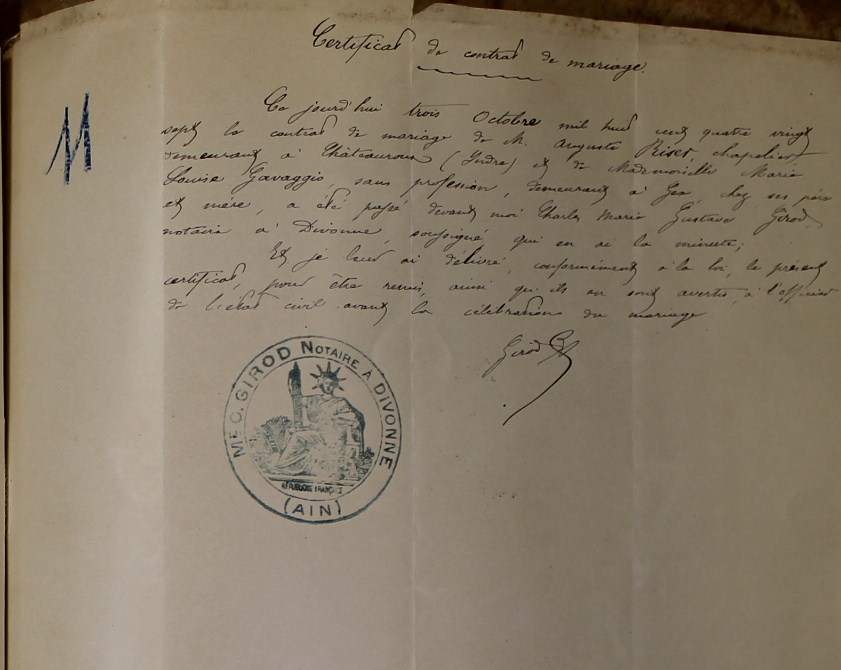 Certificat de contrat de mariage.
11
Ce jourd'hui trois Octobre mil huit cent quatre vingt
sept le contrat de mariage de M. Auguste Riset, chapelier,
demeurant à Châteauroux (Indre) et de Mademoiselle Marie
Louise Gavaggio, sans profession, demeurant à Gex, chez ses père
et mère, a été passé devant moi Charles Marie Gustave Girod,
notaire à Divonne, soussigné qui en ai la minute;
Et je leur ai délivré, conformément à la loi, le présent
certificat, pour être remis, ainsi qu'ils en sont avertis, à l'officier
de l'état civil avant la célébration du mariage
Girod
ME C. GIROD NOTAIRE A DIVONNE
REPUBLIQUE FRANÇAISE
(AIN)